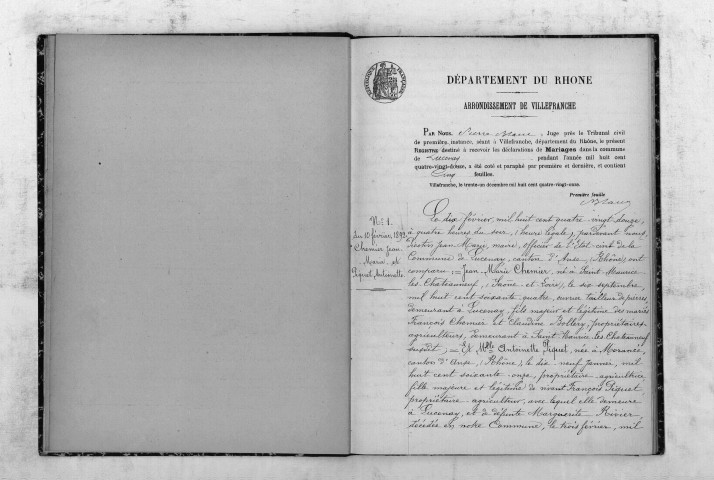 RÉPUBLIQUE FRANÇAISE
DÉPARTEMENT DU RHONE
ARRONDISSEMENT DE VILLEFRANCHE
PAR NOUS, Pierre, Juge près le Tribunal civil
de première instance, séant à Villefranche, département du Rhône, le présent
REGISTRE destiné à recevoir les déclarations de Mariages dans la commune
de Lucenay pendant l'année mil huit cent
quatre-vingt-douze, a été coté et paraphé par première et dernière, et contient
Cinq feuilles.
Villefranche, le trente-un décembre mil huit cent quatre-vingt-onze.
Première feuille
No 1.
du 10 février 1892
Chemier Jean
Marie et
Piquet Antoinette
Le dix février, mil huit cent quatre vingt douze,
à quatre heures du soir, (heure légale), pardevant nous,
Jean Marie, maire, officier de l'Etat civil de la
Commune de Lucenay, canton d'Anse, (Rhône), ont
comparu := Jean Marie Chemier, né à Saint Maurice
les Chateauneuf, (Saône et Loire), le dix septembre,
mil huit cent soixante quatre, ouvrier tailleur de pierres,
demeurant à Lucenay, fils majeur et légitime des mariés
François Chemier et Claudine, propriétaires
agriculteurs, demeurant à Saint Maurice les Chateauneuf
susdit ; = Et Mlle Antoinette Piquet, née à Morancé,
canton d'Anse, (Rhône), le dix neuf janvier, mil
huit cent soixante onze, propriétaire agricultrice,
fille majeure et légitime de vivant François Piquet
propriétaire agriculteur, avec lequel elle demeure
à Lucenay, et de défunte Marguerite Rivier,
décédée en notre Commune, le trois février, mil